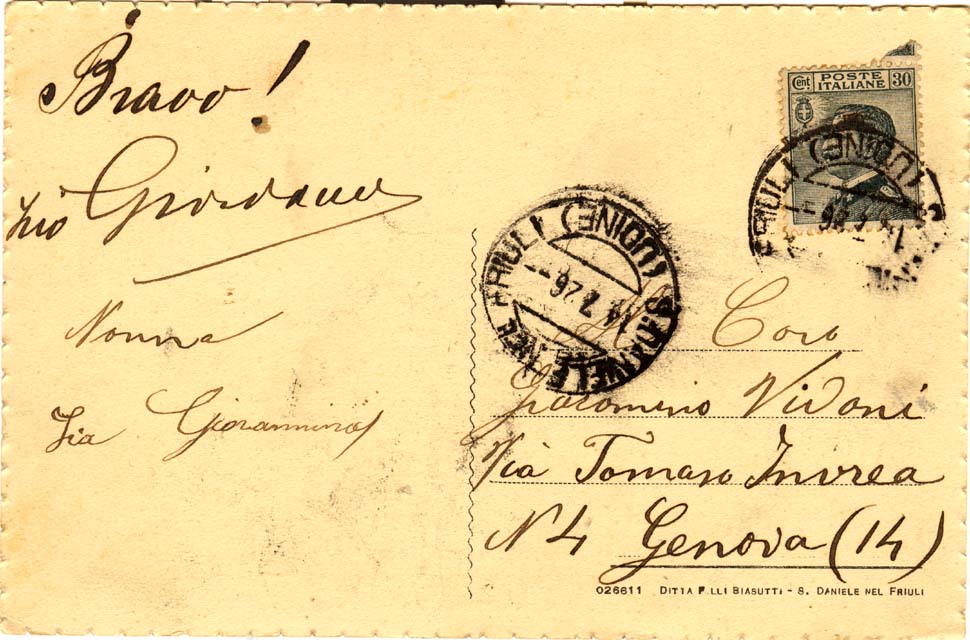 Bravo!
Zio Giordano
Nonna
Zia Giovannina
Cent. POSTE ITALIANE 30
FRIULI (UDINE)
S. DANIELE NEL FRIULI (UDINE)
14.7.26
Al Caro
Giacomino Vidoni
Via Tomaso Invrea
N 4 Genova (14)
026611 DITTA F.LLI BIASUTTI - S. DANIELE NEL FRIULI